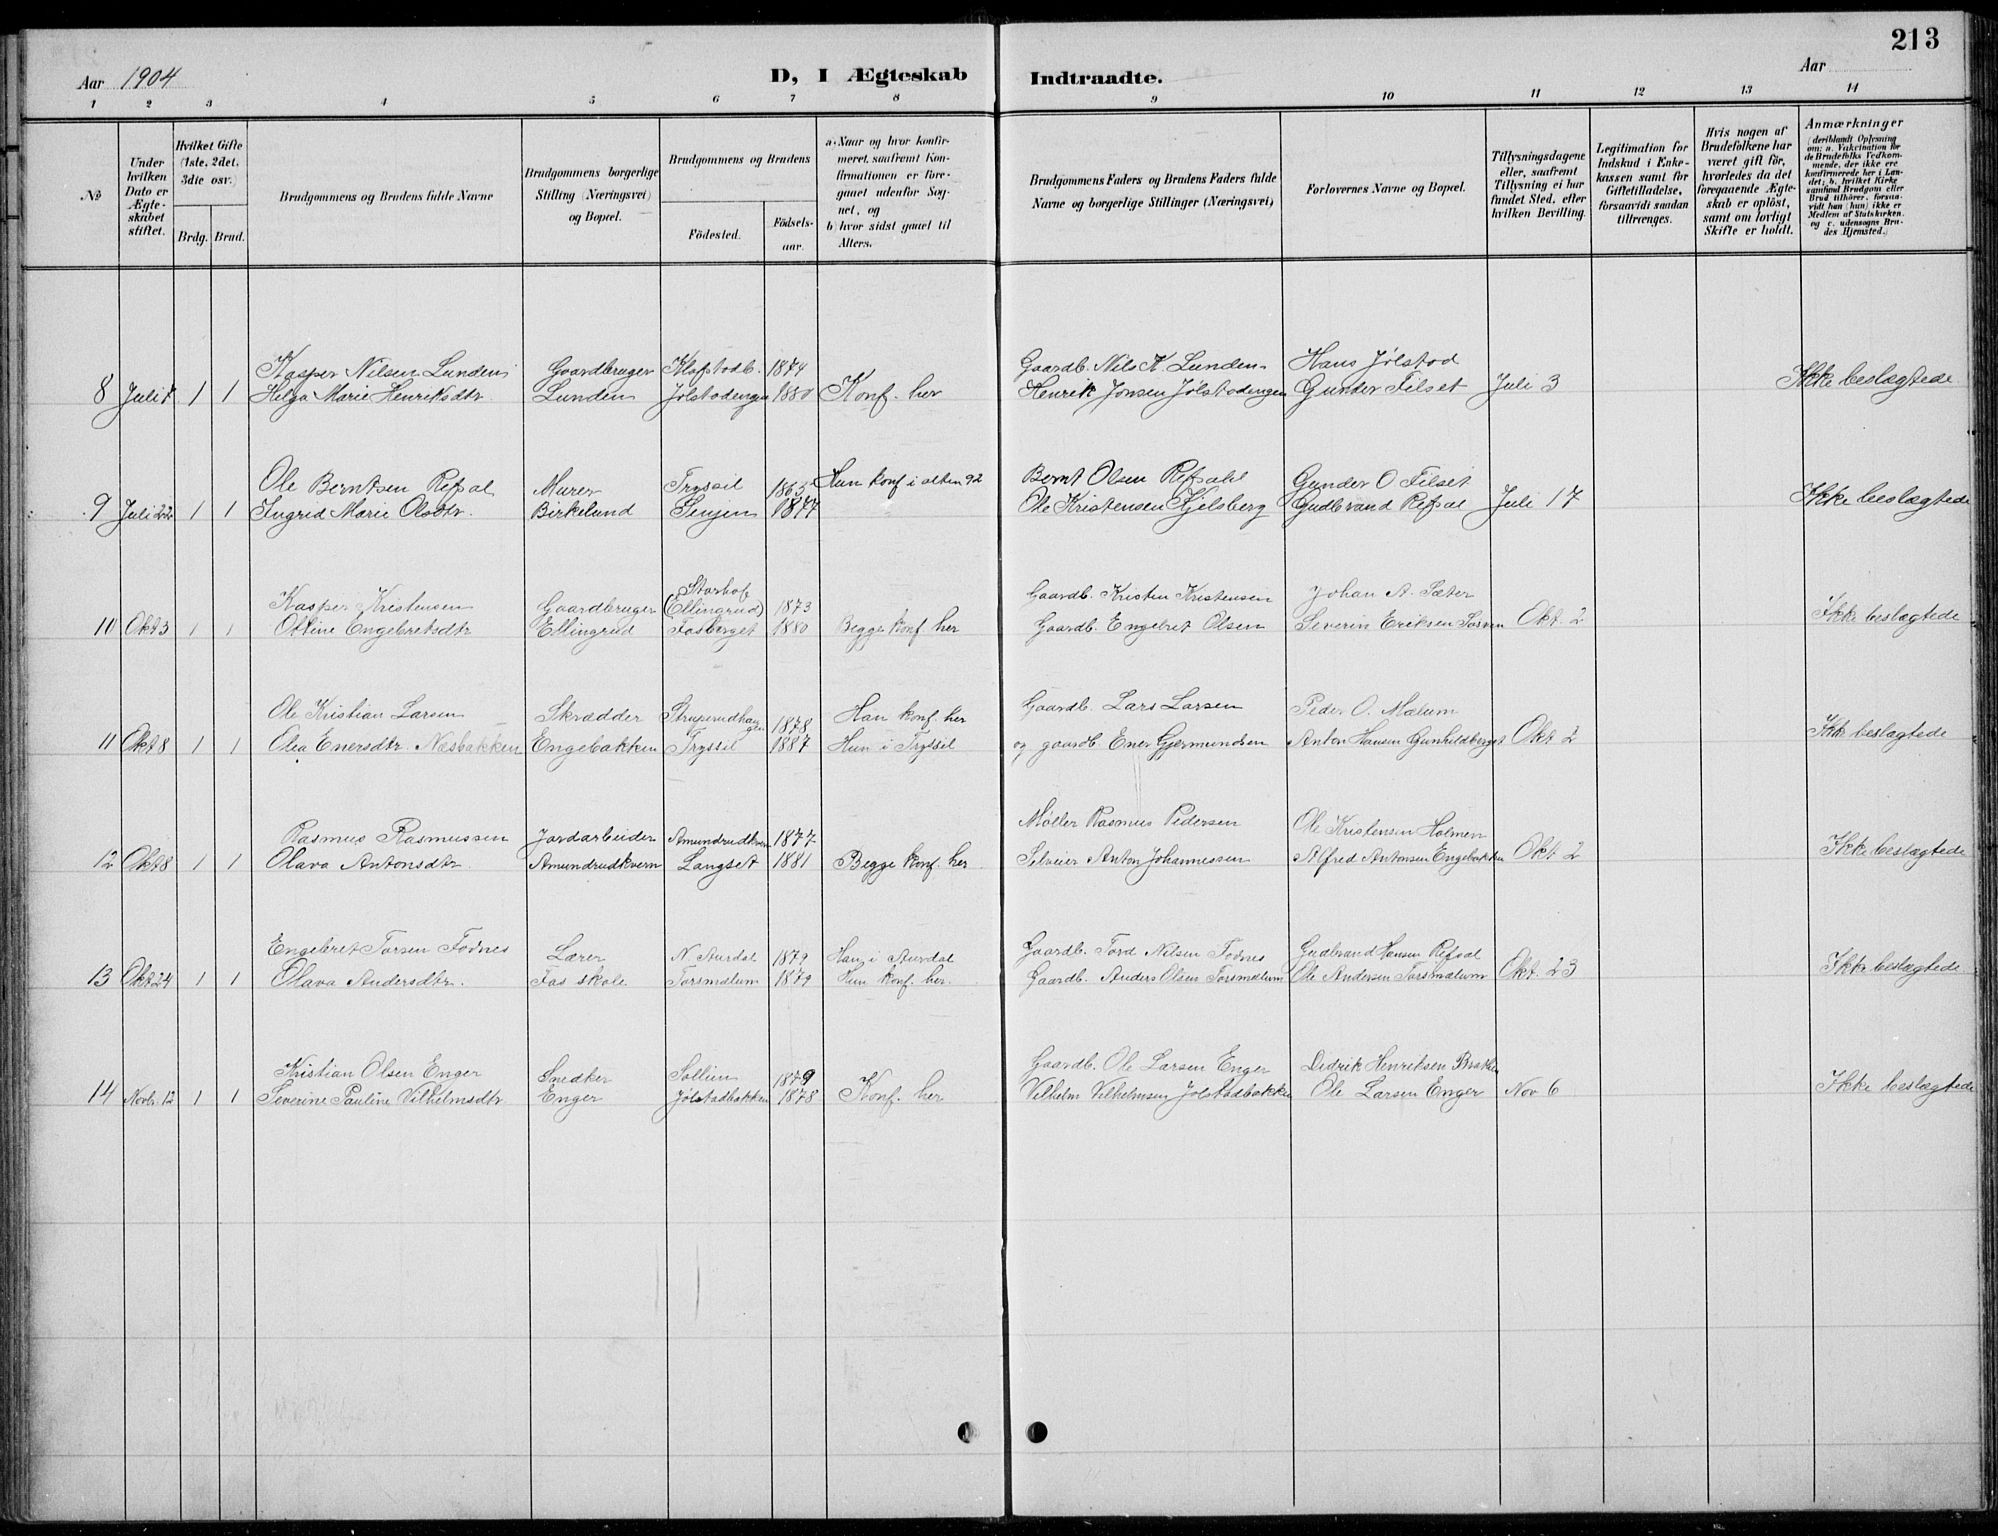 213
Aar 1904
D, I Ægteskab Indtraadte.
Aar
1 2 3 4 5 6 7 8 9 10 11 12 13 14
№
Under hvilken Dato er Ægteskabet stiftet.
Hvilket Gifte (1ste, 2det, 3die osv.)
Brdg. Brud.
Brudgommens og Brudens fulde Navne
Brudgommens borgerlige Stilling (Næringsvei) og Bopæl.
Brudgommens og Brudens
Födested.
Födselsaar.
a) Naar og hvor konfirmeret, saafremt Konfirmationen er foregaaet udenfor Sognet, og
b) hvor sidst gaaet til Alters.
Brudgommens Faders og Brudens Faders fulde Navne og borgerlige Stillinger (Næringsvei)
Forlovernes Navne og Bopæl.
Tillysningsdagene eller, saafremt Tillysning ei har fundet Sted, efter hvilken Bevilling.
Legitimation for Indskud i Enkekassen samt for Giftetilladelse, forsaavidt saadan tiltrænges.
Hvis nogen af Brudefolkene har været gift før, hvorledes da det foregaaende Ægteskab er oplöst, samt om lovligt Skifte er holdt.
Anmærkninger (deriblandt Oplysning om: a. Vakcination for de Brudefolks Vedkommende, der ikke ere konfirmerede her i Landet; b. hvilket Kirkesamfund Brudgom eller Brud tilhörer, forsaavidt han (hun) ikke er Medlem af Statskirken, og c. udensogns Brudes Hjemsted.)
Kasper Nilsen Lunden Gaardbruger Klafstadb. 1874 Gaardb. Nils K. Lunden Hans Jølstad
8 Juli 7 1 1 Helga Marie Henriksdtr. Lunden Jølstadengen 1880 Konf. her Henrik Jonsen Jølstadengen Gunder Filset Juli 3 Ikke beslægtede
Ole Berntsen Refsal Murer Tryssil 1863 Hun konf i alten 92 Bernt Olsen Refsahl Gunder O Filset
9 Juli 22 1 1 Ingrid Marie Olsdtr. Birkelund Sinjen 1877 Ole Kristensen Kjelsberg Gudbrand Refsal Juli 17 Ikke beslægtede
Kasper Kristensen Gaardbruger Storhof (Ellingrud) 1873 Gaardb. Kristen Kristensen Johan A. Sæter
10 Okt 3 1 1 Ottine Engebretsdtr Ellingrud Fasberget 1880 Begge konf her Gaardb. Engebret Olsen Severin Eriksen Okt. 2 Ikke beslægtede
Ole Kristian Larsen Skrædder Struperudhagen 1878 Han konf. her Gaardb. Lars Larsen Peder O. Mælum
11 Okt 8 1 1 Olea Enersdtr. Næsbakken Engebakken Tryssil 1887 Hun i Trysil og gaardb. Ener Gjermundsen Anton Hansen Gunhildberget Okt 2 Ikke beslægtede
Rasmus Rasmussen Jordarbeider Amundrudkvern 1877 Møller Rasmus Pedersen Ole Kristensen Holmen
12 Okt 8 1 1 Olava Antonsdtr Amundrudkvern Langset 1881 Begge konf. her Selveier Anton Johannessen Alfred Antonsen Engebakken Okt 2 Ikke beslægtede
Engebret Torsen Fodnes Lærer N. Aurdal 1879 Han i Aurdal Gaardb. Tord Nilsen Fodnes Gudbrand Hansen Refsal
13 Okt 24 1 1 Olava Andersdtr. Fas skole Torsmælum 1879 Hun konf. her. Gaardb. Anders Olsen Torsmælum Ole Andersen Torsmælum Okt. 23 Ikke beslægtede
Kristian Olsen Enger Snedker Sollien 1879 Gaardb. Ole Larsen Enger Didrik Henriksen
14 Novb. 12 1 1 Severine Pauline Vilhelmsdtr. Enger Jølstadbakken 1878 Konf. her Vilhelm Vilhelmsen Jølstadbakken Ole Larsen Enger Nov 6 Ikke beslægtede